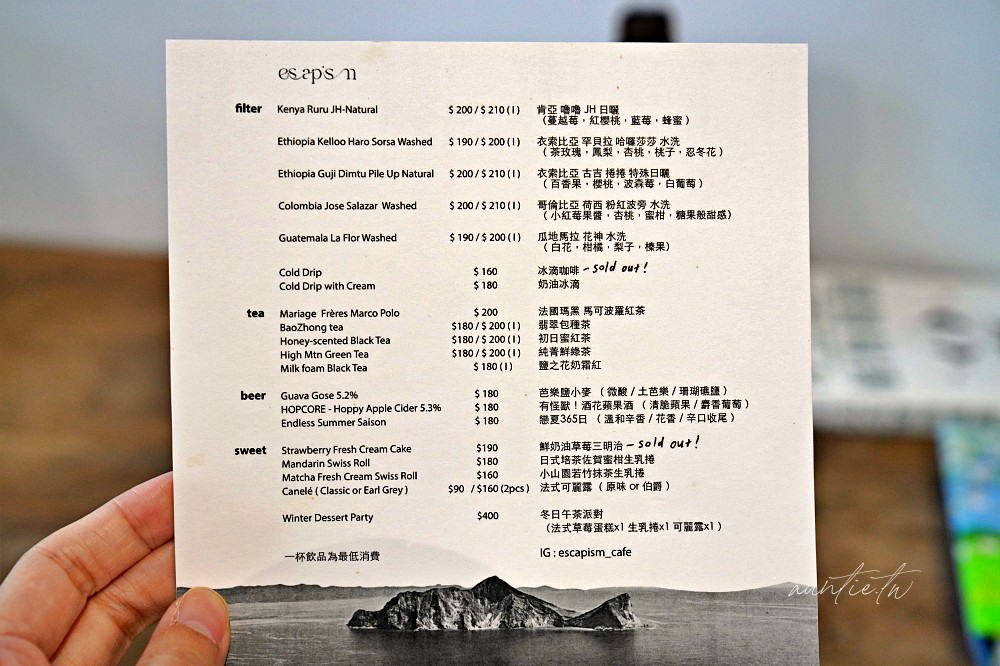 escapism
filter Kenya Ruru JH-Natural $ 200 / $ 210 ( I ) 肯亞 嚕嚕 JH 日曬
（蔓越莓，紅櫻桃，藍莓，蜂蜜）
Ethiopia Kelloo Haro Sorsa Washed $ 190 / $ 200 ( I ) 衣索比亞 罕貝拉 哈囉莎莎 水洗
（茶玫瑰，鳳梨，杏桃，桃子，忍冬花）
Ethiopia Guji Dimtu Pile Up Natural $ 200 / $ 210 ( I ) 衣索比亞 古吉 捲捲 特殊日曬
（百香果，櫻桃，波森莓，白葡萄）
Colombia Jose Salazar Washed $ 200 / $ 210 ( I ) 哥倫比亞 荷西 粉紅波旁 水洗
（小紅莓果醬，杏桃，蜜柑，糖果般甜感）
Guatemala La Flor Washed $ 190 / $ 200 ( I ) 瓜地馬拉 花神 水洗
（白花，柑橘，梨子，榛果）
Cold Drip $ 160 冰滴咖啡 - sold out!
Cold Drip with Cream $ 180 奶油冰滴
tea Mariage Frères Marco Polo $ 200 法國瑪黑 馬可波羅紅茶
BaoZhong tea $180 / $ 200 ( I ) 翡翠包種茶
Honey-scented Black Tea $180 / $ 200 ( I ) 初日蜜紅茶
High Mtn Green Tea $180 / $ 200 ( I ) 純菁鮮綠茶
Milk foam Black Tea $ 180 ( I ) 鹽之花奶霜紅
beer Guava Gose 5.2% $ 180 芭樂鹽小麥 （ 微酸 / 土芭樂 / 珊瑚礁鹽 ）
HOPCORE - Hoppy Apple Cider 5.3% $ 180 有怪獸！酒花蘋果酒 （ 清脆蘋果 / 麝香葡萄 ）
Endless Summer Saison $ 180 戀夏365日 （ 溫和辛香 / 花香 / 辛口收尾 ）
sweet Strawberry Fresh Cream Cake $190 鮮奶油草莓三明治 - sold out!
Mandarin Swiss Roll $180 日式培茶佐賀蜜柑生乳捲
Matcha Fresh Cream Swiss Roll $160 小山園若竹抹茶生乳捲
Canelé ( Classic or Earl Grey ) $90 / $160 (2pcs ) 法式可麗露 （ 原味 or 伯爵 ）
Winter Dessert Party $400 冬日午茶派對
（法式草莓蛋糕x1 生乳捲x1 可麗露x1 ）
一杯飲品為最低消費 IG : escapism_cafe
auntie.tw